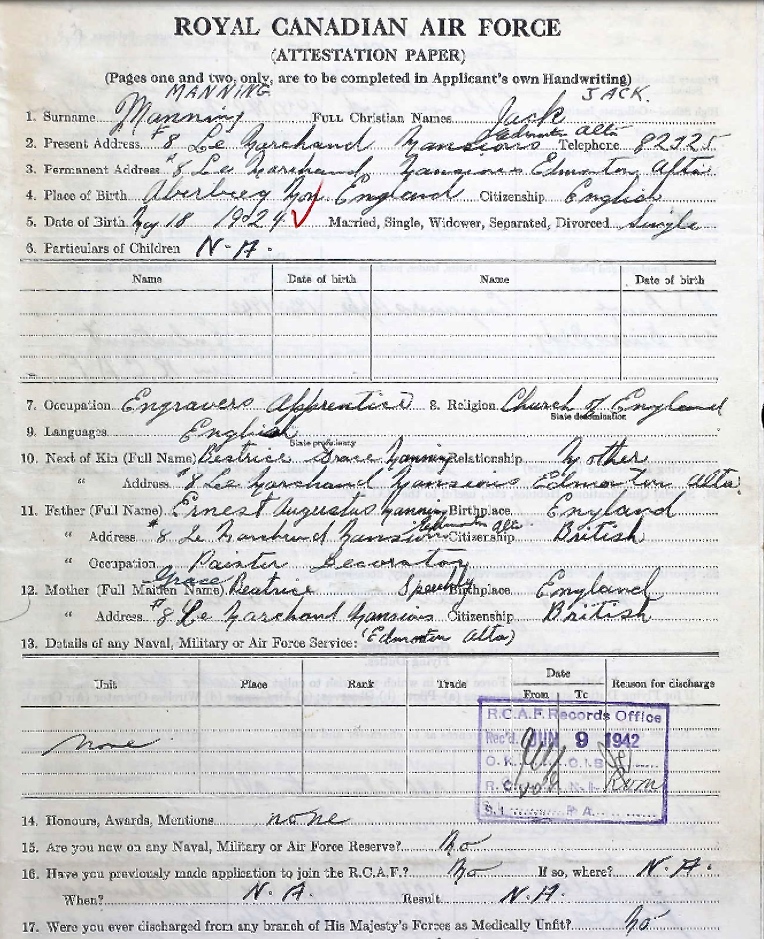 ROYAL CANADIAN AIR FORCE
(ATTESTATION PAPER)
(Pages one and two, only, are to be completed in Applicant's own Handwriting)
MANNING JACK.
1. Surname Manning FULL Christian Names Jack
2. Present Address #8 Le Marchand Mansions Edmonton Alta Telephone 82325
3. Permanent Address #8 Le Marchand Mansions Edmonton Alta
4. Place of Birth Mon. England Citizenship English
5. Date of Birth 18 1924 Married, Single, Widower, Separated, Divorced Single
6. Particulars of Children N.A.
Name Date of birth Name Date of birth
7. Occupation Engravers Apprentice 8. Religion Church of England
State denomination
9. Languages English
State proficiency
10. Next of Kin (Full Name) Beatrice Grace Manning Relationship Mother
" Address #8 Le Marchand Mansions Edmonton Alta.
11. Father (Full Name) Ernest Augustus Manning Birthplace England
" Address #8 Le Marchand Mansions Edmonton Alta. Citizenship British
" Occupation Painter Decorator
12. Mother (Full Maiden Name) Grace Beatrice Birthplace England
" Address #8 Le Marchand Mansions Citizenship British
(Edmonton Alta)
13. Details of any Naval, Military or Air Force Service:
Unit Place Rank Trade Date From To Reason for discharge
none
R.C.A.F. Records Office
Rec'd. JUN 9 1942
O.K. O.I.S.
R.C.
S.I. P.A.
14. Honours, Awards, Mentions none
15. Are you now on any Naval, Military or Air Force Reserve? No
16. Have you previously made application to join the R.C.A.F.? No If so, where? N.A.
When? N.A. Result N.A.
17. Were you ever discharged from any branch of His Majesty's Forces as Medically Unfit? No